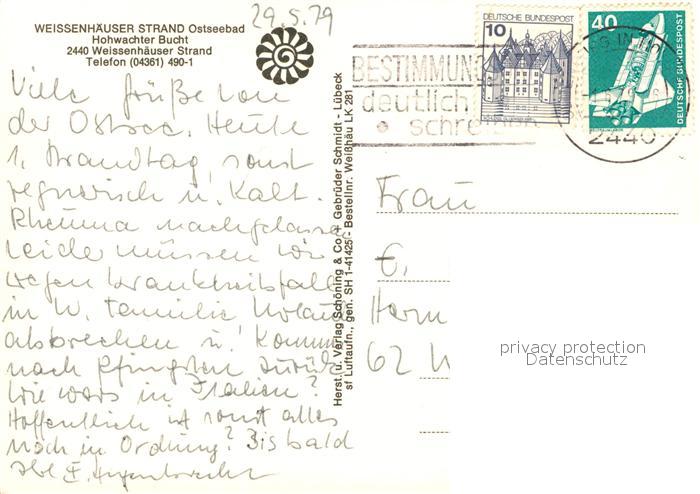 29.5.79
WEISSENHÄUSER STRAND Ostseebad
Hohwachter Bucht
2440 Weissenhäuser Strand
Telefon (04361) 490-1
Viele Grüße von
der Ostsee. Heute
1. Strandtag, sonst
regnerisch u. kalt.
Rheuma nachgelassen
Leider müssen wir
wegen Krankheitsfall
in W. Familie Urlaub
abbrechen u. kommen
nach Pfingsten zurück
Wie wars in Italien?
Hoffentlich ist sonst alles
noch in Ordnung? Bis bald
Herst. u. Verlag Schöning & Co + Gebrüder Schmidt - Lübeck
sf Luftaufn., gen. SH 1-41425 - Bestellnr. Weißhäu LK 281
DEUTSCHE BUNDESPOST
10
40
DEUTSCHE BUNDESPOST
BESTIMMUNGS
deutlich
schreiben
2440
Frau
E.
Herm
62 W
privacy protection
Datenschutz